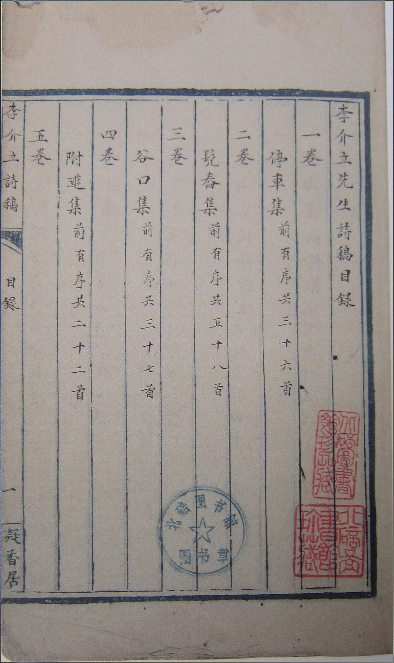 李介立先生詩稿目錄
一卷
停車集前有序共三十六首
二卷
髡春集前有序共五十八首
三卷
谷口集前有序共三十七首
四卷
附進集前有序共二十二首
五卷
李介立詩稿
目錄
一
凝香居